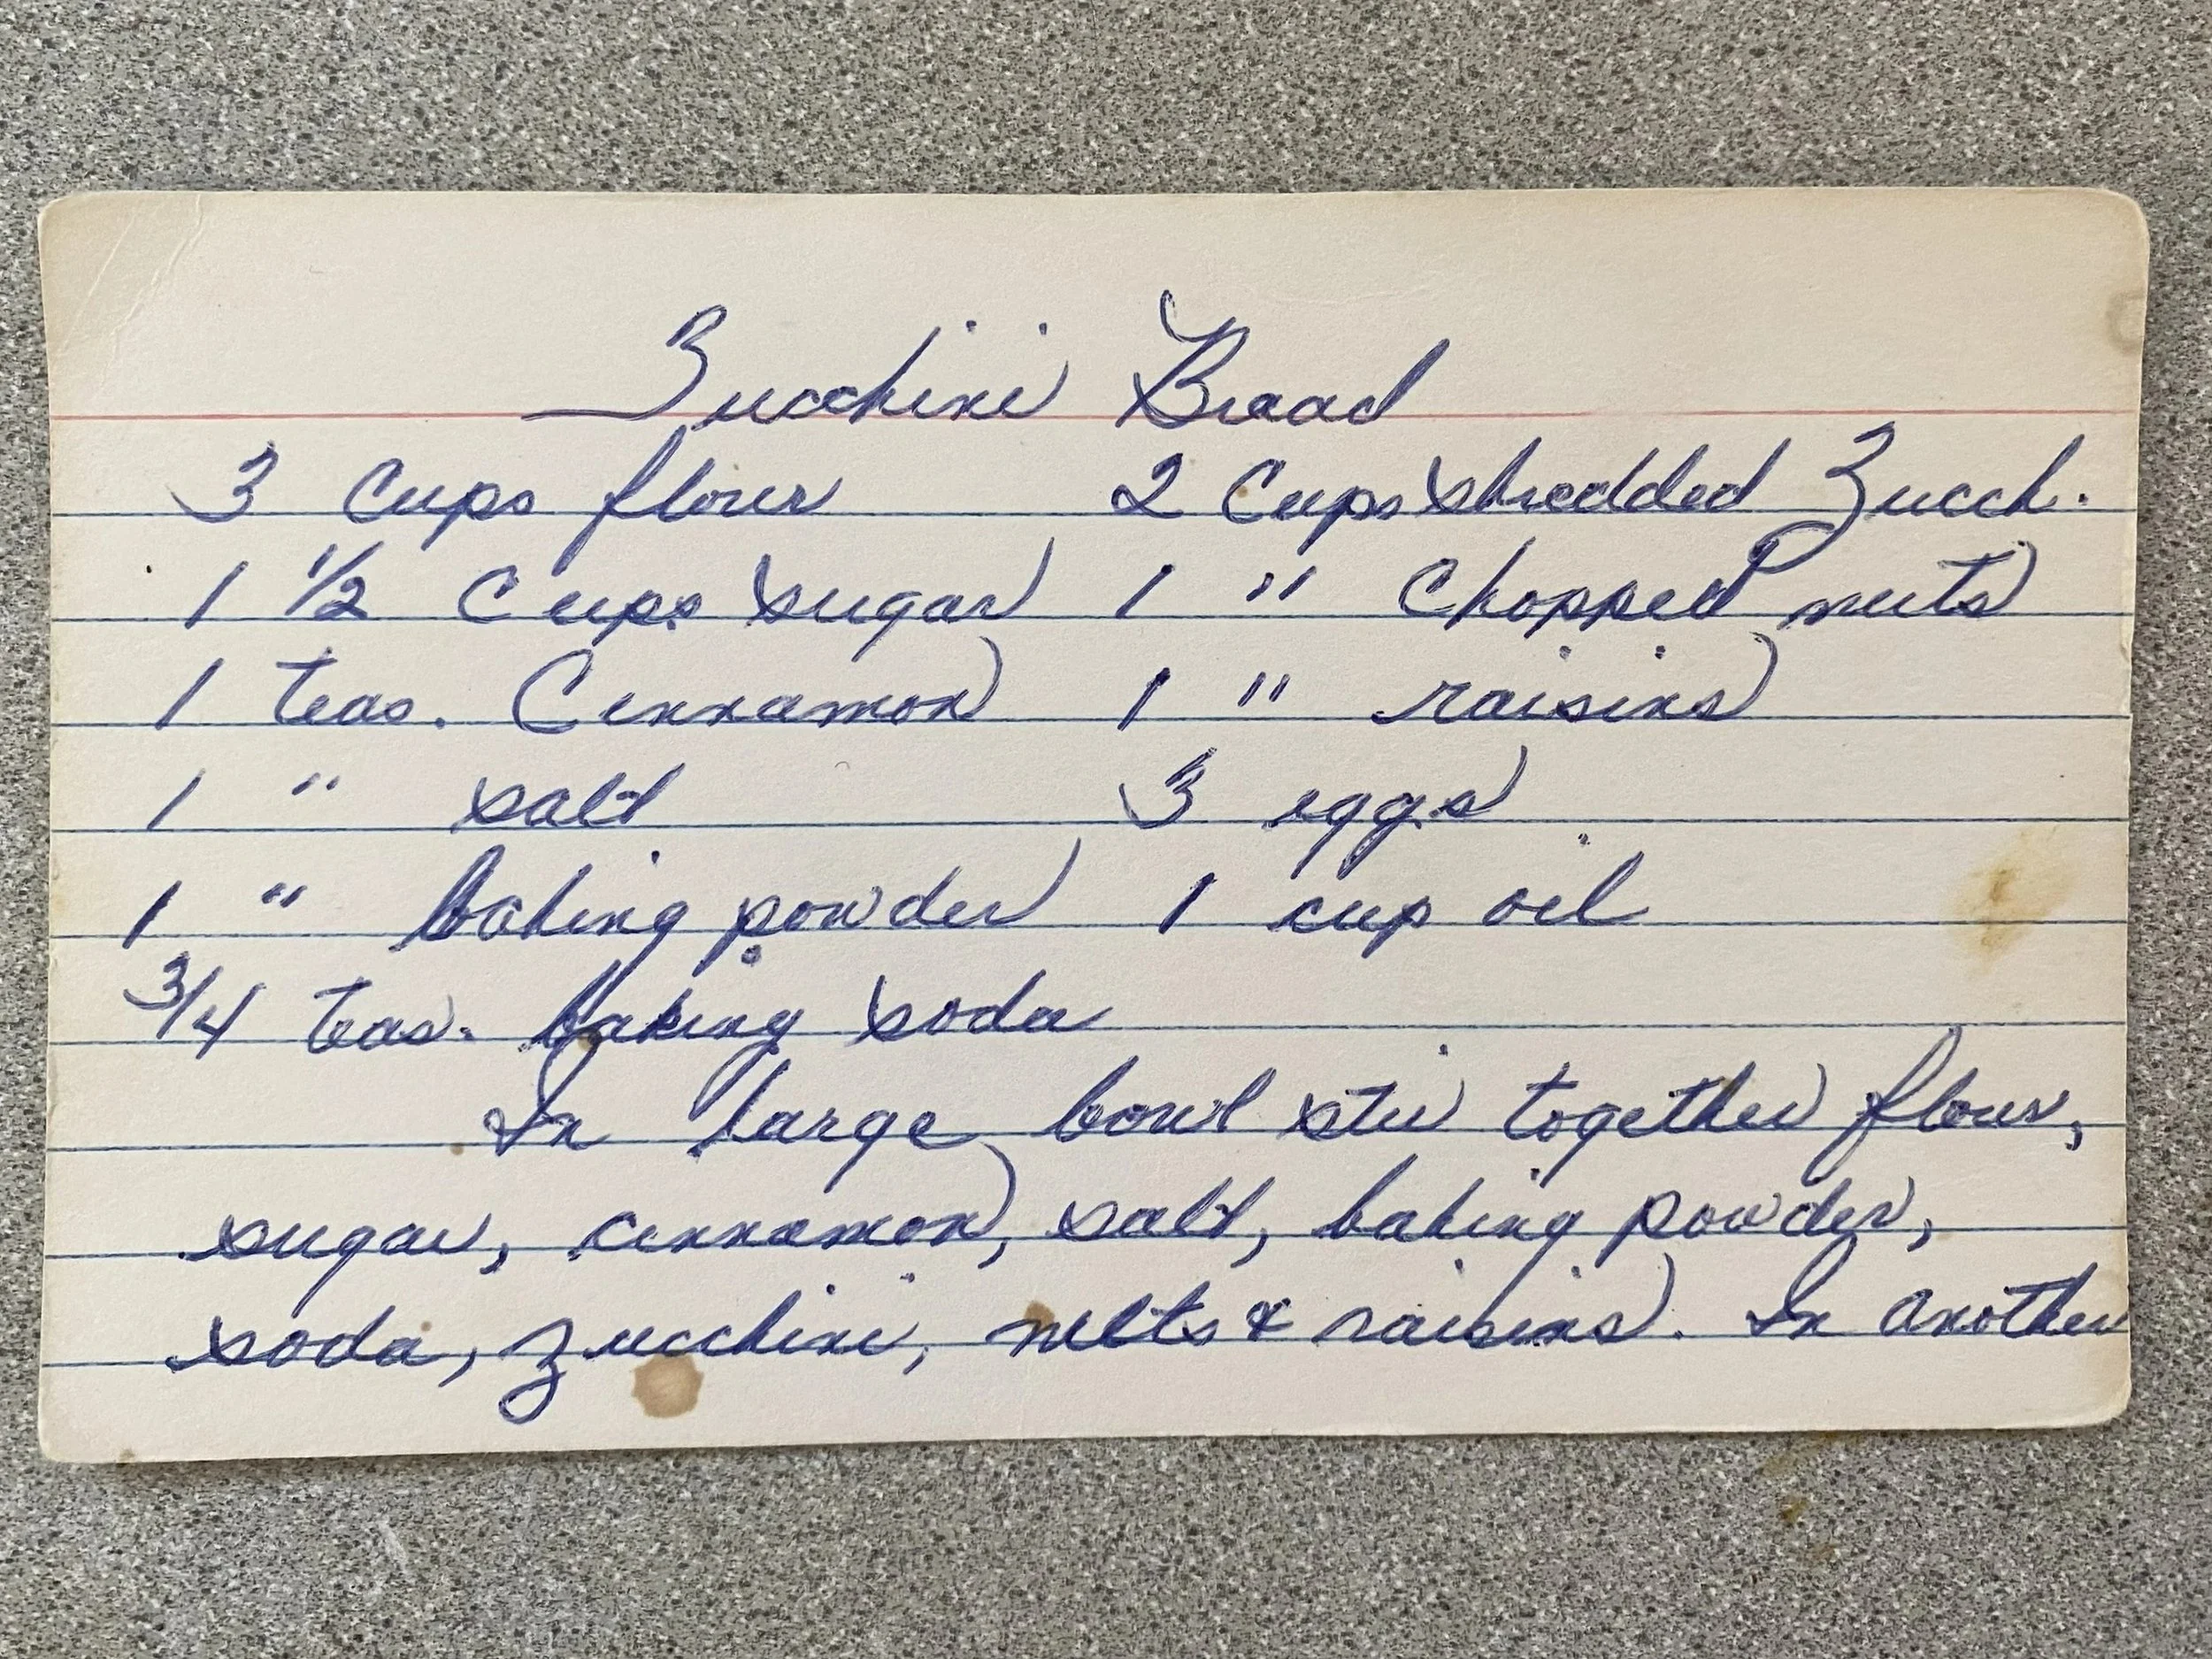 Zucchini Bread
3 Cups flour 2 Cups shredded Zucch.
1 1/2 Cups sugar 1 " Chopped nuts
1 teas. Cinnamon 1 " raisins
1 " salt 3 eggs
1 " baking powder 1 cup oil
3/4 teas. baking soda
In large bowl stir together flour,
sugar, cinnamon, salt, baking powder,
soda, zucchini, nuts & raisins. In another